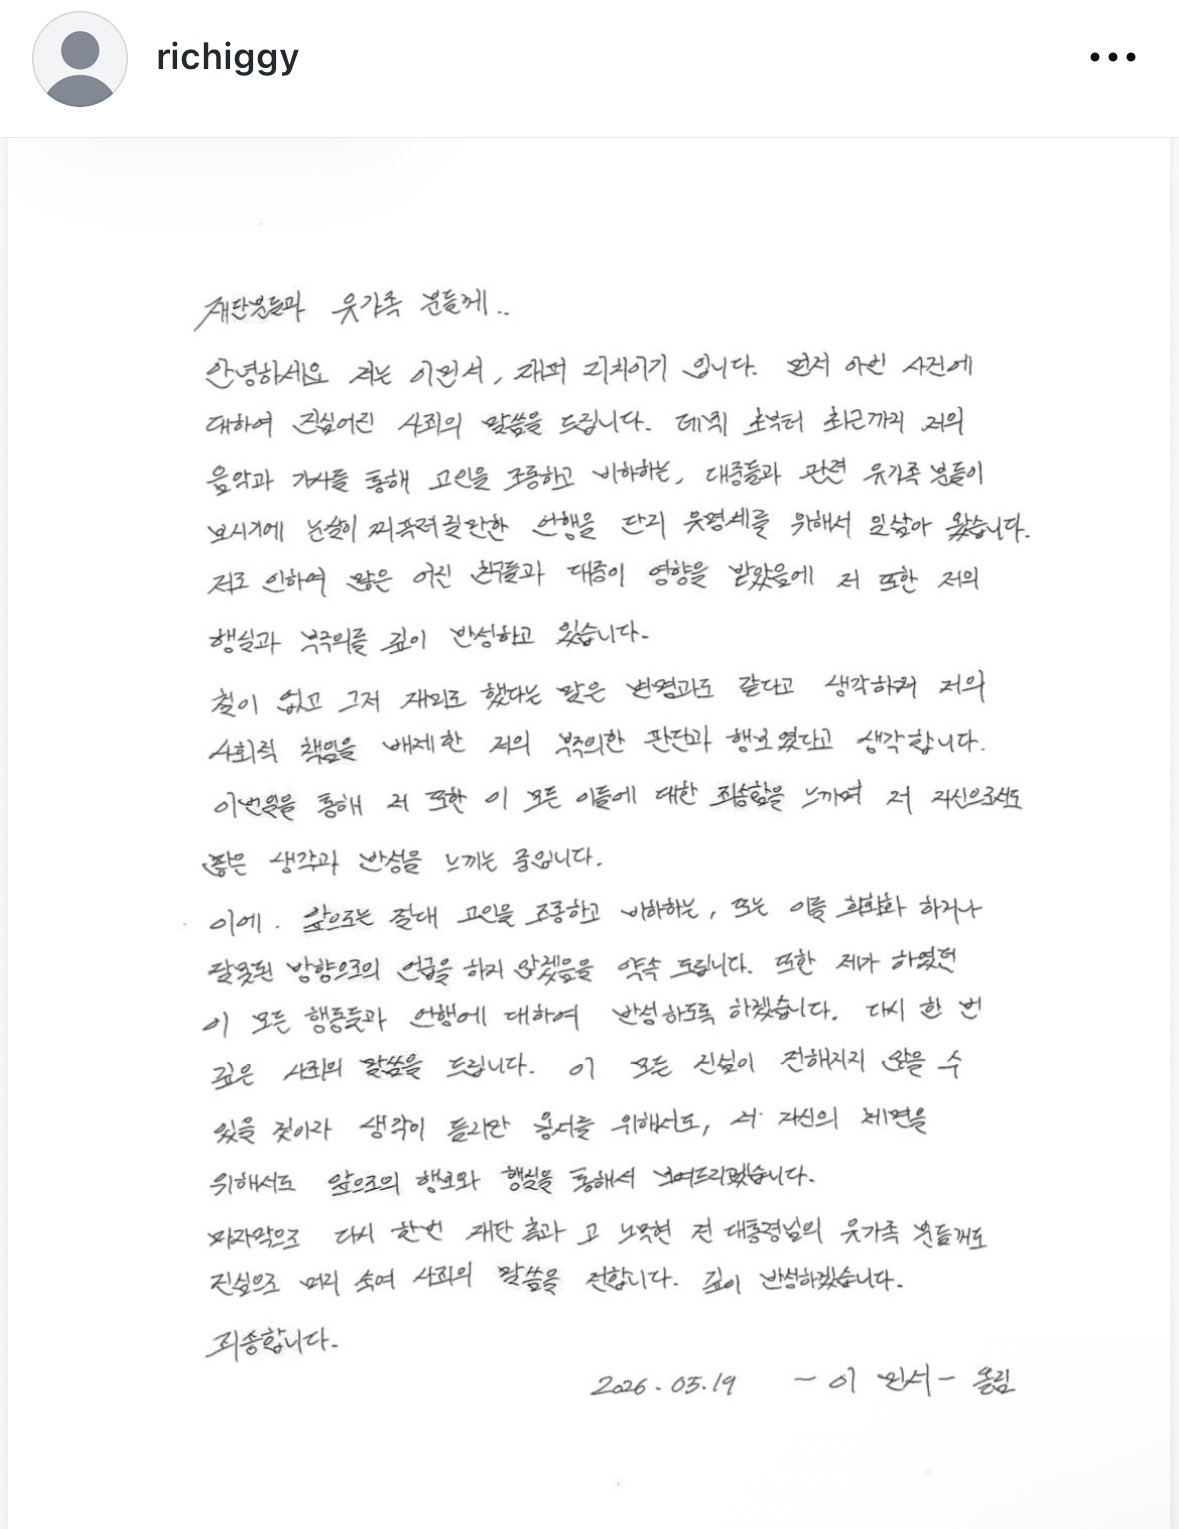 richiggy
재단분들과 유가족 분들께..
안녕하세요 저는 이민서, 래퍼 리치이기 입니다. 먼저 이번 사건에
대하여 진심어린 사죄의 말씀을 드립니다. 데뷔 초부터 최근까지 저의
음악과 가사를 통해 고인을 조롱하고 비하하는, 대중들과 관련 유가족 분들이
보시기에 눈살이 찌푸려질만한 언행을 단지 유명세를 위해서 일삼아 왔습니다.
저로 인하여 많은 어린 친구들과 대중이 영향을 받았음에 저 또한 저의
행실과 부주의를 깊이 반성하고 있습니다.
철이 없고 그저 재미로 했다는 말은 변명과도 같다고 생각하며 저의
사회적 책임을 배제한 저의 부주의한 판단과 행보였다고 생각합니다.
이번일을 통해 저 또한 이 모든 이들에 대한 죄송함을 느끼며 저 자신으로서도
많은 생각과 반성을 느끼는 중입니다.
이에. 앞으로는 절대 고인을 조롱하고 비하하는, 또는 이를 희화화 하거나
잘못된 방향으로의 언급을 하지 않겠음을 약속 드립니다. 또한 제가 하였던
이 모든 행동들과 언행에 대하여 반성하도록 하겠습니다. 다시 한 번
깊은 사죄의 말씀을 드립니다. 이 모든 진심이 전해지지 않을 수
있을 것이라 생각이 들지만 용서를 위해서도, 저 자신의 체면을
위해서도 앞으로의 행보와 행실을 통해서 보여드리겠습니다.
마지막으로 다시 한번 재단 측과 고 노무현 전 대통령님의 유가족 분들께도
진심으로 머리 숙여 사죄의 말씀을 전합니다. 깊이 반성하겠습니다.
죄송합니다.
2026.05.19 - 이 민서 - 올림